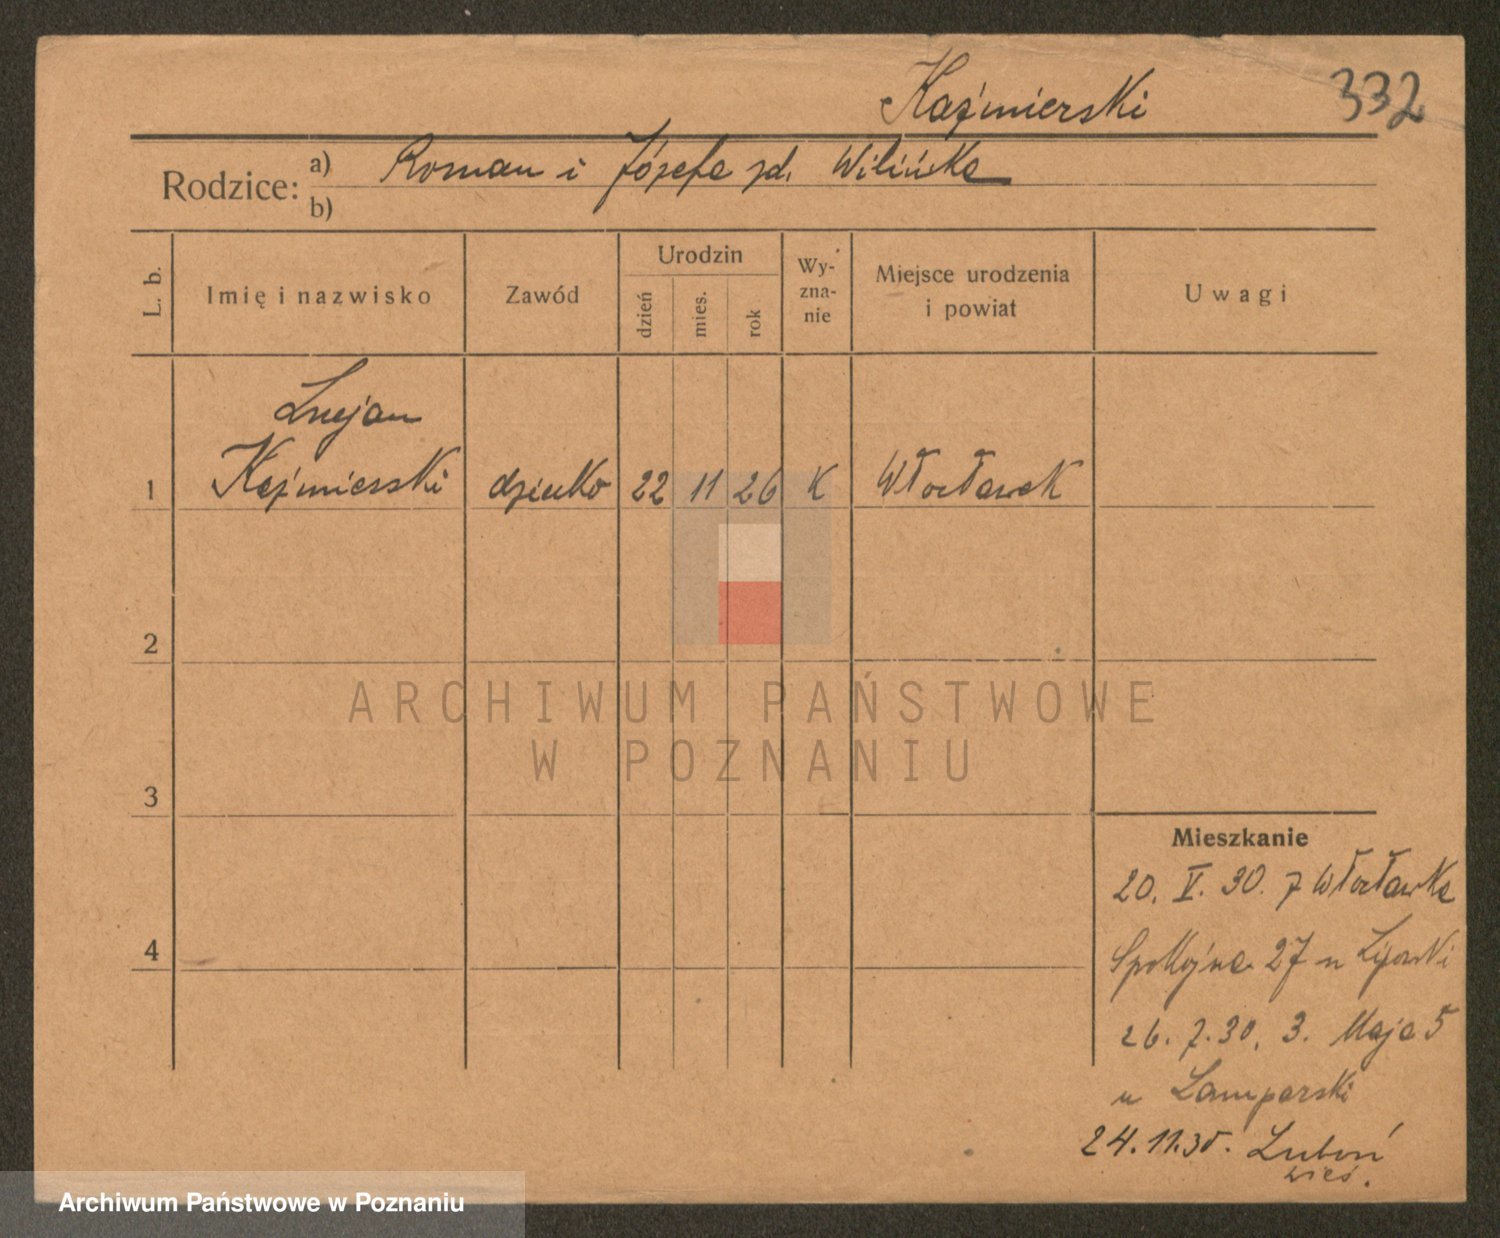 Kaźmierski
332
Rodzice:
a) Roman i Józefa zd. Wilińska
b)
L. b.
Imię i nazwisko
Zawód
Urodzin
dzień
mies.
rok
Wy-
zna-
nie
Miejsce urodzenia
i powiat
Uwagi
Lucjan
1 Kaźmierski dziecko 22 11 26 K Włocławek
2
3
4
ARCHIWUM PAŃSTWOWE
W POZNANIU
Mieszkanie
20. V. 30. z Włocławka
Spokojna 27 u
26. 7. 30. 3. Maja 5
u Lamparski
24. 11. 30. Luboń
wieś.
Archiwum Państwowe w Poznaniu